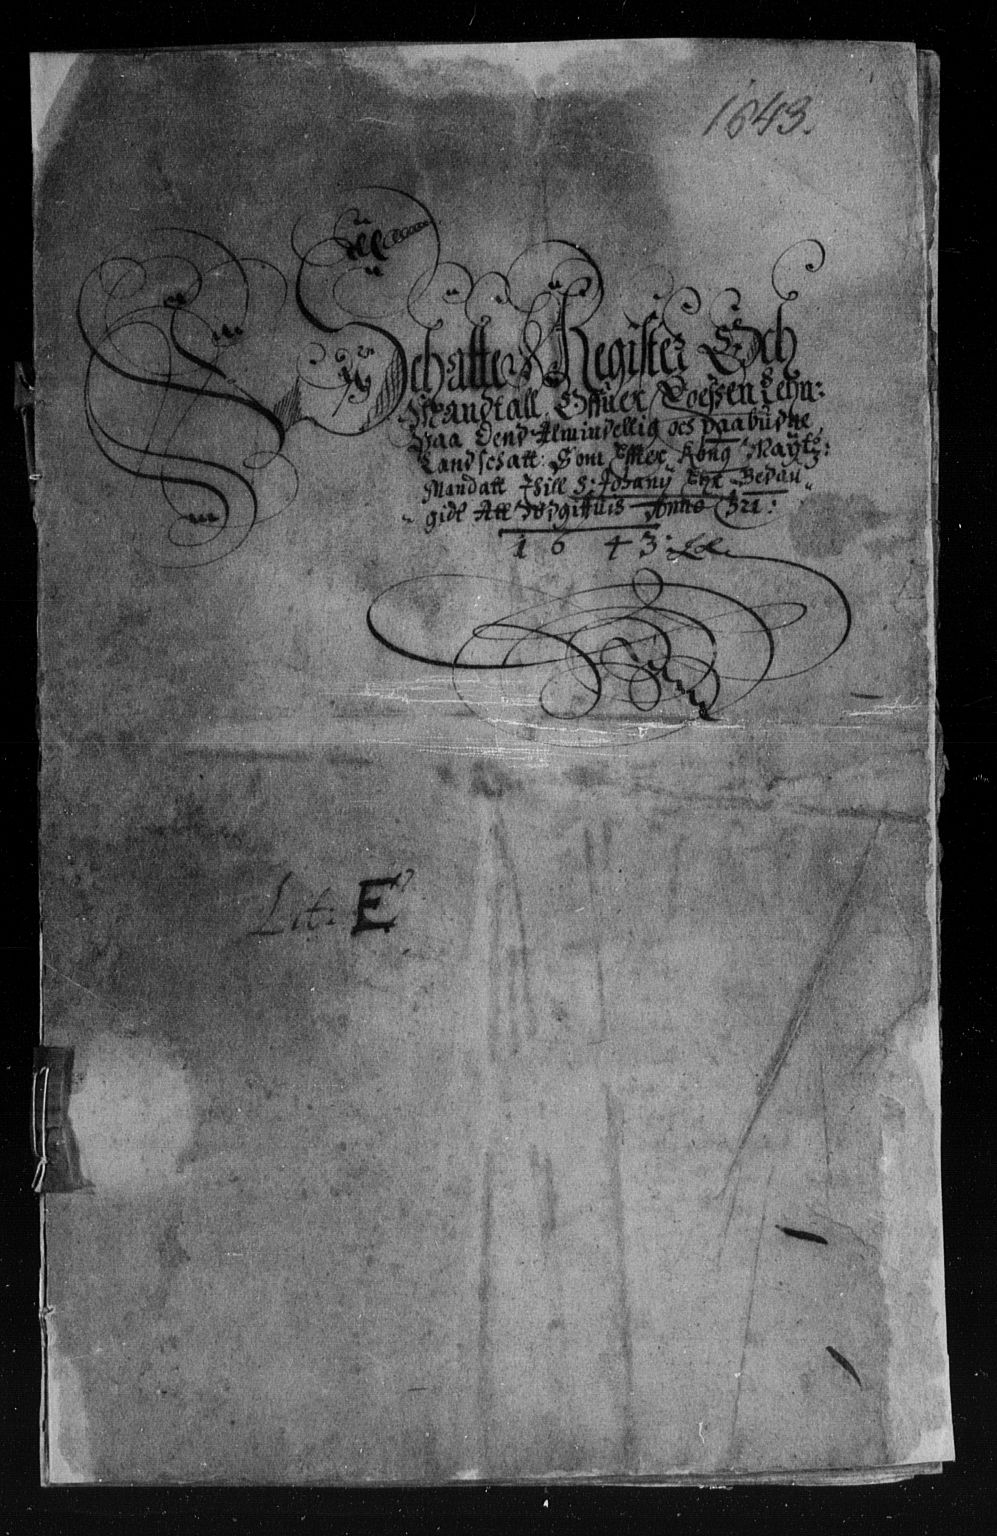 1643.
Schatte Register Och
Mandtall Offuer Voessen Lehn:
Paa Dend Almindellig och Paabudne
Landschatt: Som Effter Kong: Maytz:
Mandatt Thill S: Johanij Thr Bedau„
„ gidt Att Udgiffuis Anno
1643:
Lit: E